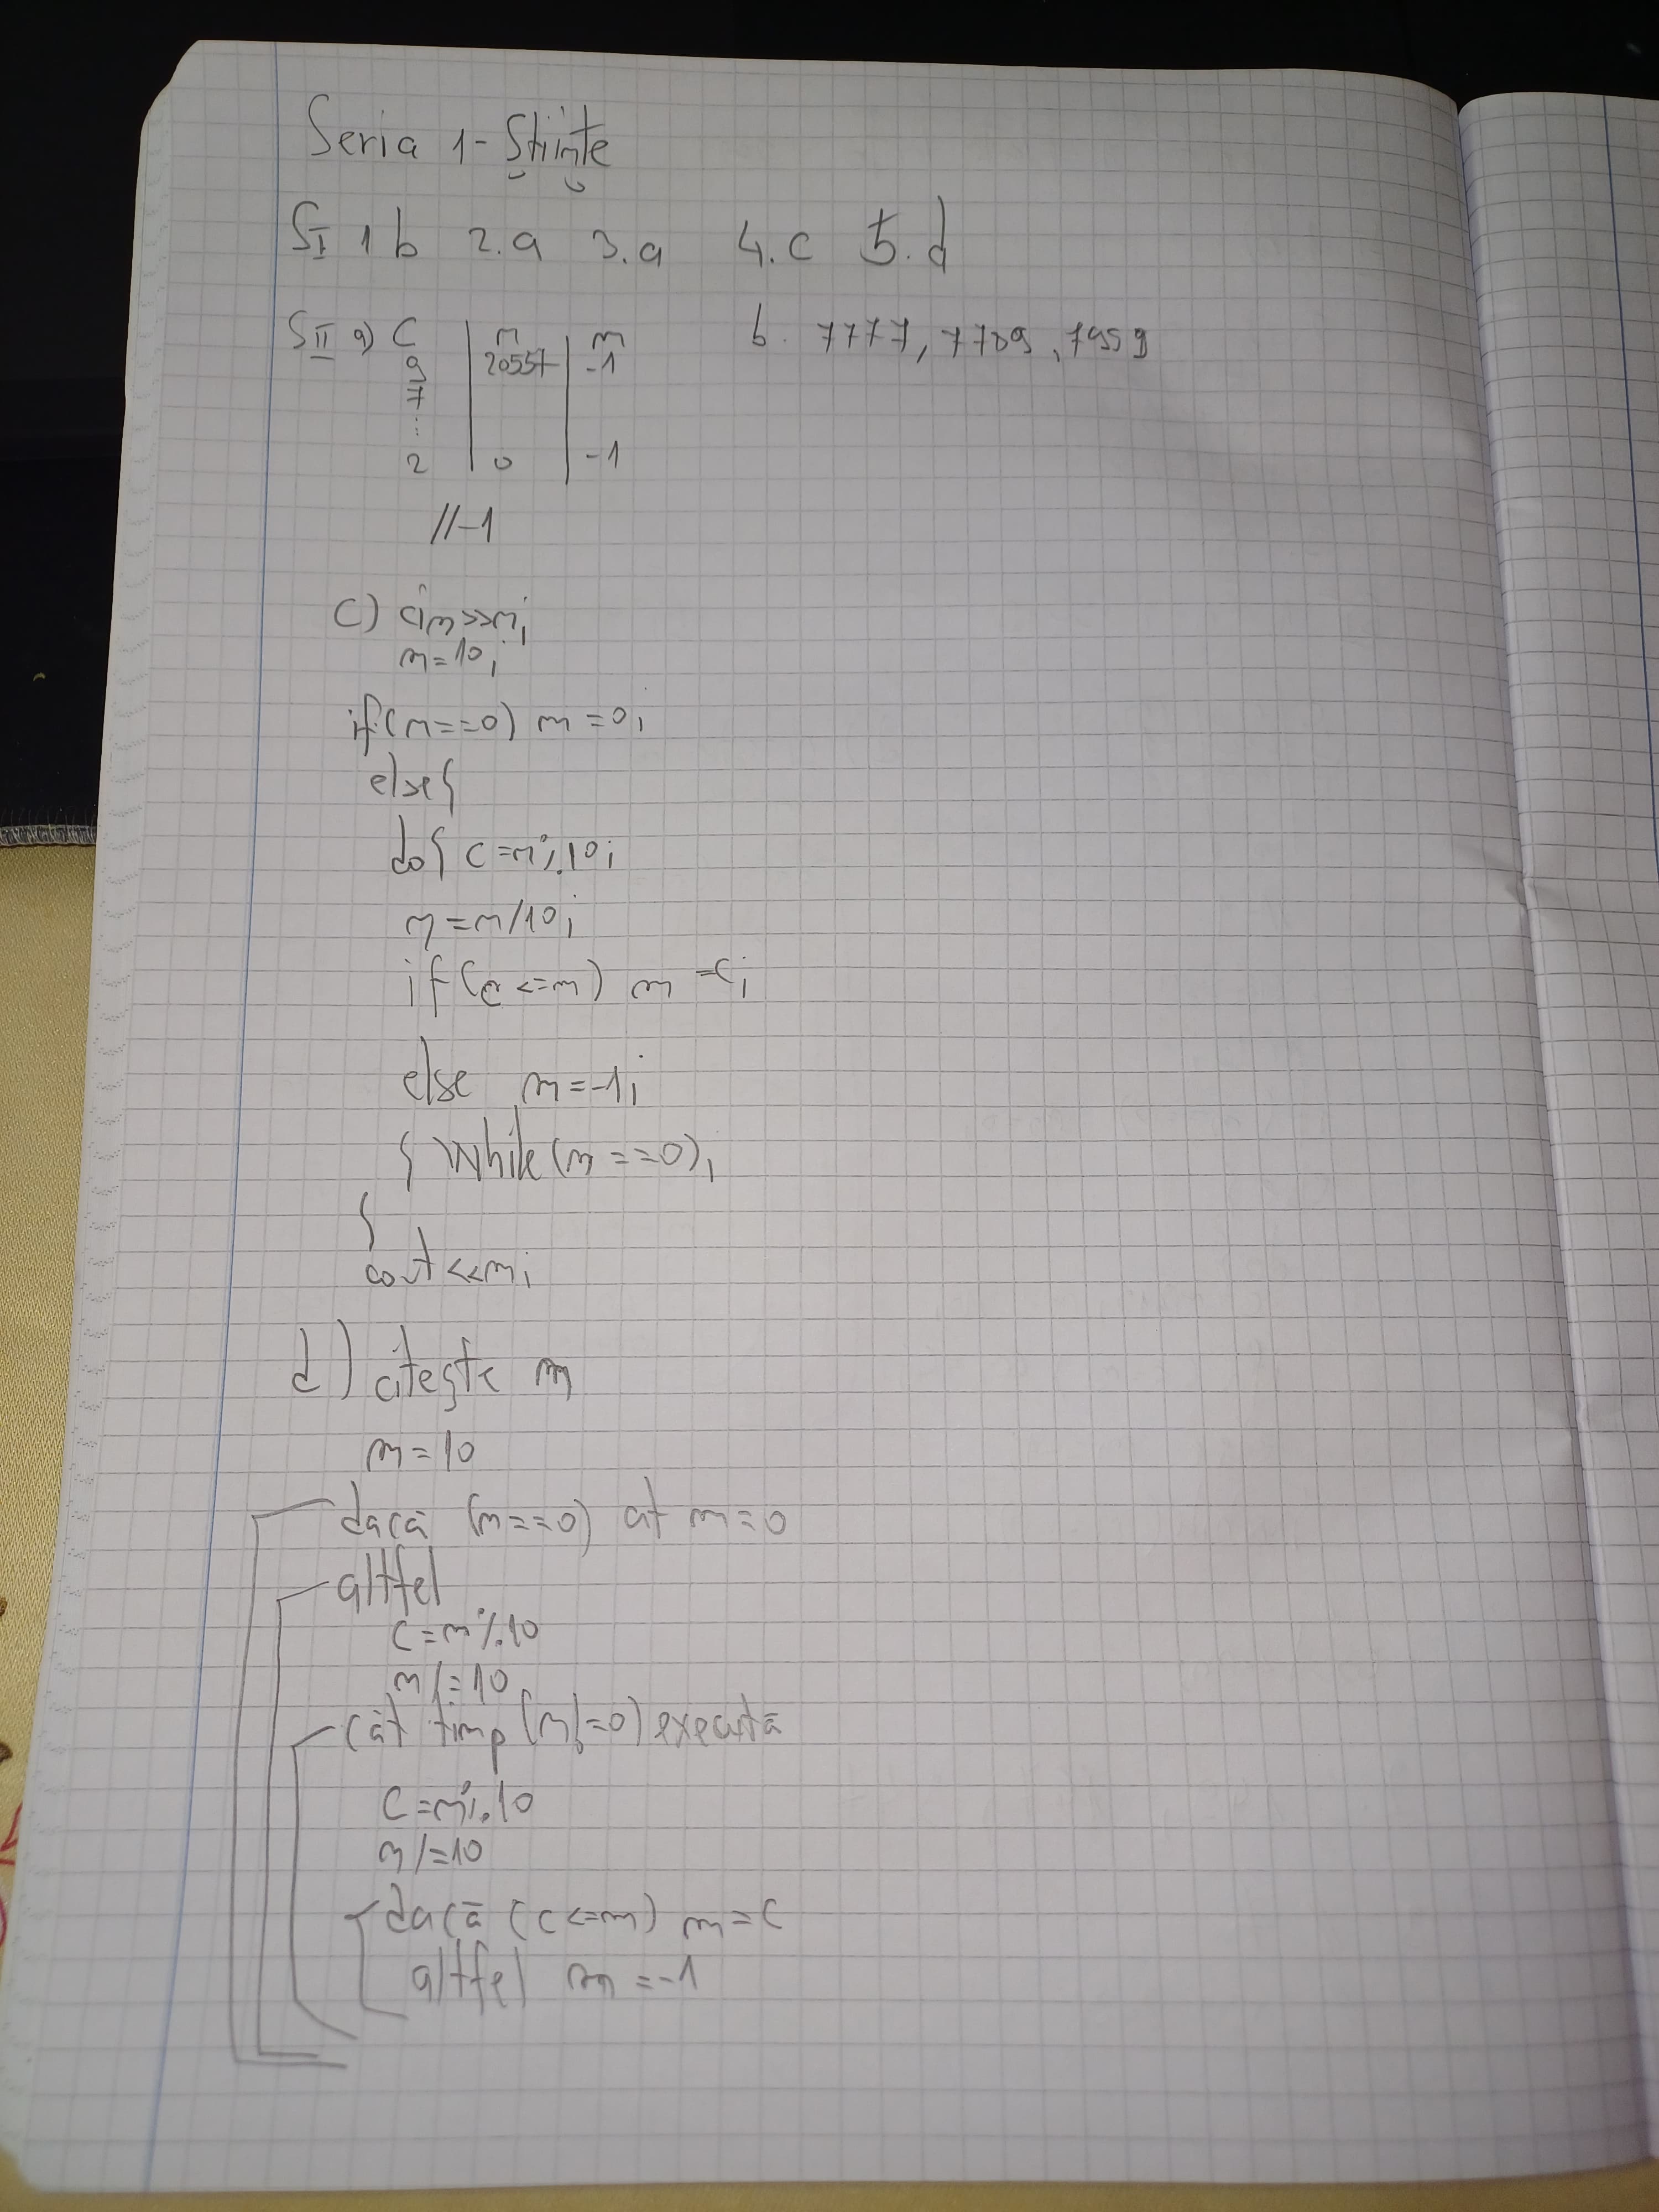 Seria 1 - Științe
SI 1 b 2. a 3. a 4. c 5. d
SII a) C n m b. 7777, 7789, 7959
9 20557 -1
7
:
2 0 -1
//-1
c) cin>>n;
m=10;
if(n==0) m=0;
else{
do{ c=n%10;
n=n/10;
if(c<=m) m=c;
else m=-1;
} while(n==0);
}
cout<<m;
d) citește n
m=10
dacă (n==0) at m=0
altfel
c=n%10
n/=10
cât timp (n!=0) execută
c=n%10
n/=10
dacă (c<=m) m=c
altfel m=-1